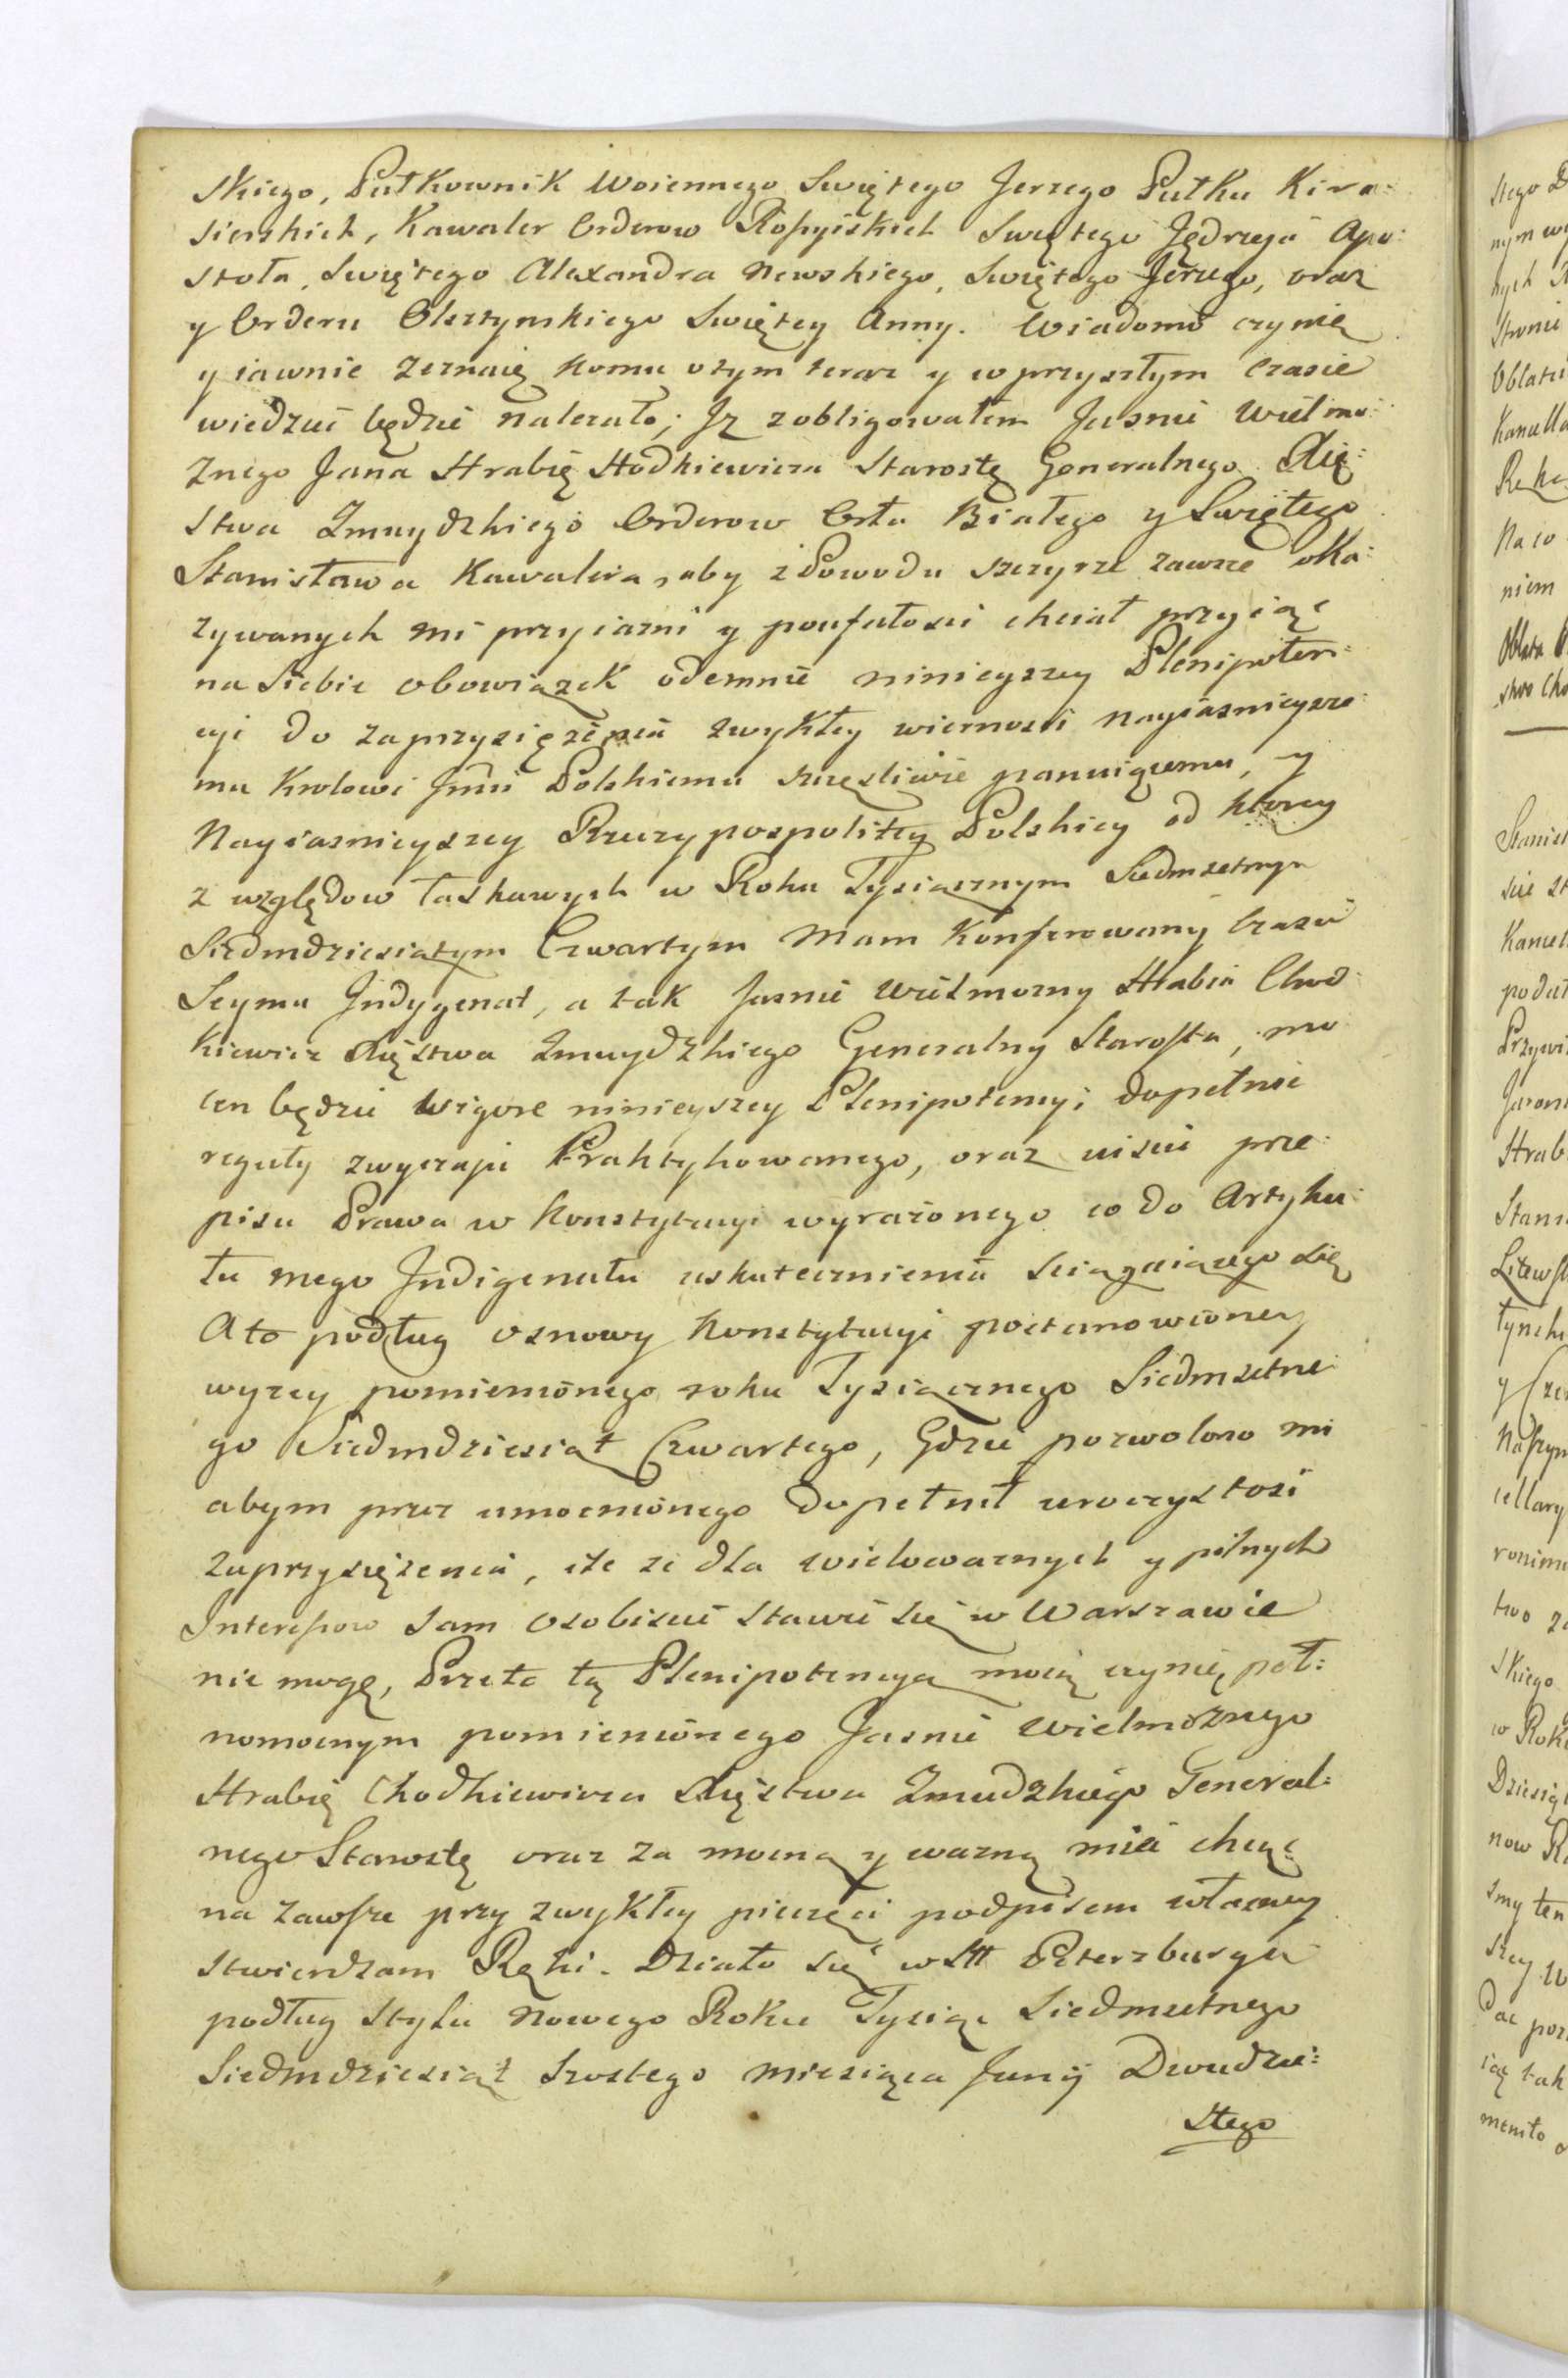 skiego, Pułkownik Woiennego Swiętego Jerzego Pułku Kira:
sierskich, Kawaler Orderow Roßyiskich Swiętego Jędrzeja Apo:
stoła, Swiętego Alexandra Newskiego, Swiętego Jerzego, oraz
y Orderu Olsztynskiego Swiętey Anny. Wiadomo czynię
y iawnie zeznaię komu otym teraz y w przyszłym Czasie
wiedzieć będzie należało; Jż zobligowałem Jasnie Wielmo:
żnego Jana Hrabię Hodkiewicza Starostę Generalnego Xię:
stwa Zmuydzkiego Orderow Orła Białego y Swiętego
Stanisława Kawalera, aby z Powodu szczyrze zawsze oka:
zywanych mi przyiazni y poufałosci chciał przyiąć
na siebie obowiązek odemnie ninieyszey Plenipoten:
cyi do zaprzysiężenia zwykłey wiernosci Nayiasnieysze:
mu Krolowi Jmci Polskiemu szczęsliwie panuiącemu, y
Nayiasnieyszey Rzeczypospolitey Polskiey od ktorey
z względow łaskawych w Roku Tysiącznym Siedmsetnym
Siedmdziesiątym Czwartym Mam Konferowany Czasu
Seymu Jndygenat, a tak Jasnie Wielmożny Hrabia Chod:
kiewicz Xięstwa Zmuydzkiego Generalny Starosta, mo:
cen będzie Wigore ninieyszey Plenipotencyi dopełnić
reguły zwyczaju Praktykowanego, oraz uiscić prze:
pisu Prawa w Konstytucyi wyrażonego co do Artyku:
łu mego Jndigenatu uskutecznienia sciągaiącego się
A to podług osnowy Konstytucyi postanowioney
wyżey pomienionego roku Tysiącznego Siedmsetne:
go Siedmdziesiąt Czwartego, Gdzie pozwolono mi
abym przez umocnionego dopełnił uroczystosć
zaprzysiężenia, ile że dla wielowaznych y pilnych
Interessow sam osobiscie stawić się w Warszawie
nie mogę, Przeto tą Plenipotencyą moią czynię peł:
nomocnym pomienionego Jasnie Wielmożnego
Hrabię Chodkiewicza Xięstwa Zmudzkiego General:
nego Starostę oraz za mocną y ważną mieć chcąc
na zawsze przy zwykłey pieczęci podpisem własney
stwierdzam Ręki. Działo się w Stt Petersburgu
podług Stylu Nowego Roku Tysiąc Siedmsetnego
Siedmdziesiąt Szostego miesiąca Junij Dwudzie:
stego